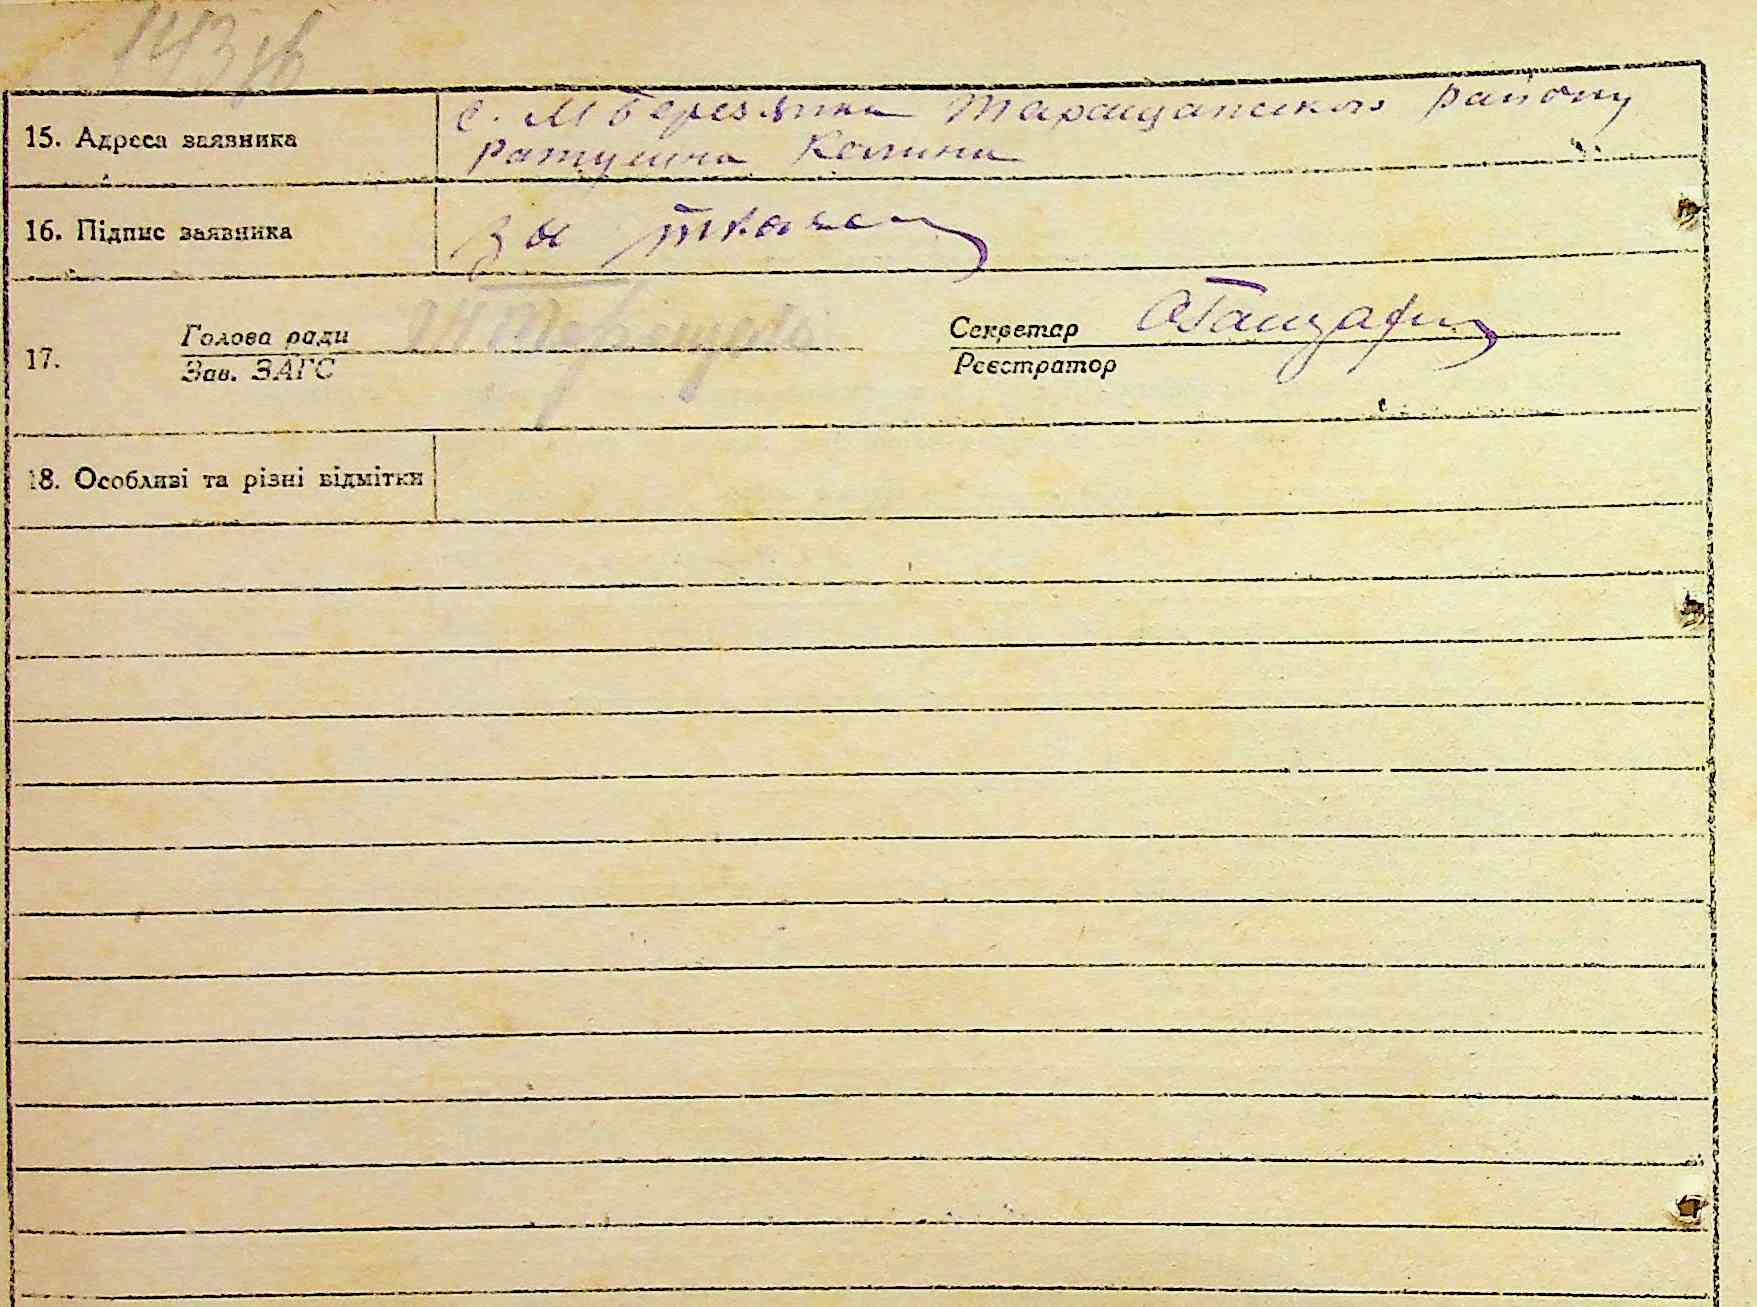 143зв
15. Адреса заявника
с. М Березянка Таращанського району
Ратушна Калина
16. Підпис заявника
за
17.
Голова ради
Зав. ЗАГС
Секретар
Реєстратор
18. Особливі та різні відмітки